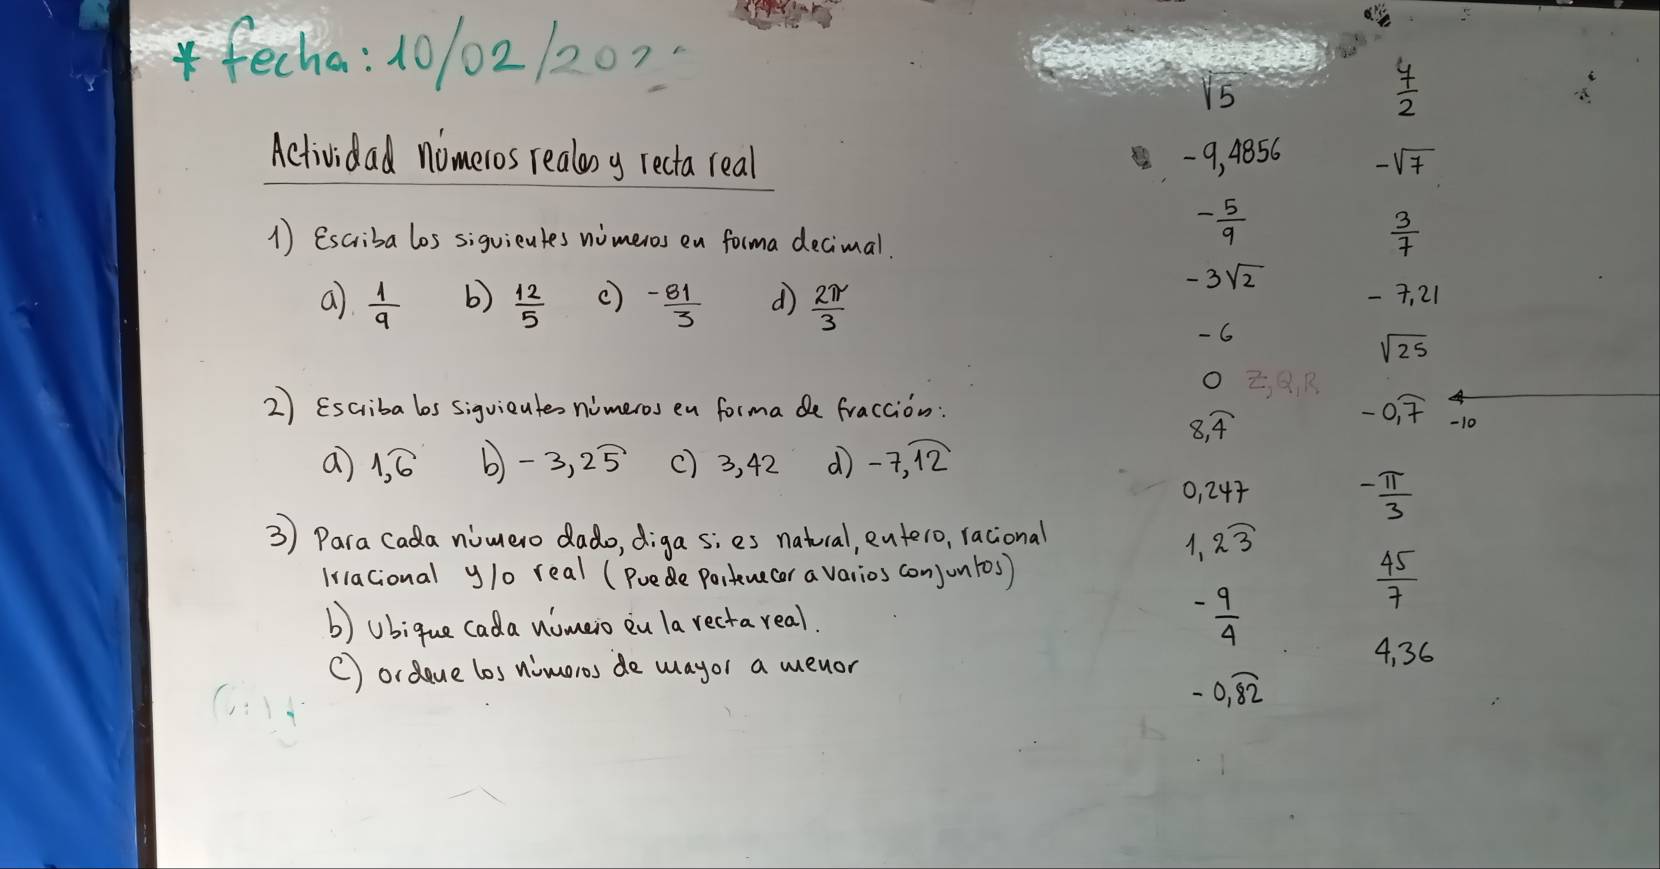 * fecha: 10/02/202
Actividad números reales y recta real
1) Escriba los siguientes números en forma decimal.
a) 1/9 b) 12/5 c) -81/3 d) 2π/3
2) Escriba los siguientes números en forma de fracción:
a) 1,6͡ b) -3,25͡ c) 3,42 d) -7,1͡2
3) Para cada número dado, diga si es natural, entero, racional
Irracional y/o real (Puede Pertenecer a varios conjuntos)
b) Ubique cada número en la recta real.
c) ordene los números de mayor a menor
√5
-9,4856
-5/9
-3√2
-6
0 Z,Q,R
8,4͡
0,247
1,23͡
-9/4
-0,8͡2
7/2
-√7
3/7
-7,21
√25
-0,7͡
-π/3
45/7
4,36
-10